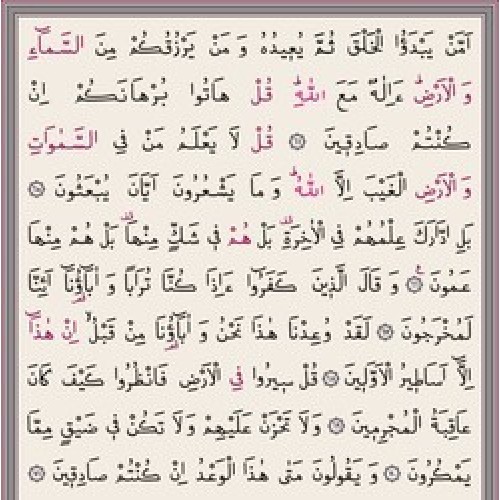 اَمَّنْ يَبْدَؤُا الْخَلْقَ ثُمَّ يُعٖيدُهُ وَ مَنْ يَرْزُقُكُمْ مِنَ السَّمَٓاءِ
وَ الْاَرْضِؕ ءَاِلٰهٌ مَعَ اللّٰهِؕ قُلْ هَاتُوا بُرْهَانَكُمْ اِنْ
كُنْتُمْ صَادِقٖينَ ۝ قُلْ لَا يَعْلَمُ مَنْ فِي السَّمٰوَاتِ
وَ الْاَرْضِ الْغَيْبَ اِلَّا اللّٰهُؕ وَ مَا يَشْعُرُونَ اَيَّانَ يُبْعَثُونَ ۝
بَلِ ادَّارَكَ عِلْمُهُمْ فِي الْاٰخِرَةِۚ بَلْ هُمْ فٖي شَكٍّ مِنْهَاۚ بَلْ هُمْ مِنْهَا
عَمُونَ ۝ وَ قَالَ الَّذٖينَ كَفَرُٓوا ءَاِذَا كُنَّا تُرَابًا وَ اٰبَٓاؤُنَٓا اَئِنَّا
لَمُخْرَجُونَ ۝ لَقَدْ وُعِدْنَا هٰذَا نَحْنُ وَ اٰبَٓاؤُنَا مِنْ قَبْلُۙ اِنْ هٰذَٓا
اِلَّٓا اَسَاطٖيرُ الْاَوَّلٖينَ ۝ قُلْ سٖيرُوا فِي الْاَرْضِ فَانْظُرُوا كَيْفَ كَانَ
عَاقِبَةُ الْمُجْرِمٖينَ ۝ وَلَا تَحْزَنْ عَلَيْهِمْ وَلَا تَكُنْ فٖي ضَيْقٍ مِمَّا
يَمْكُرُونَ ۝ وَ يَقُولُونَ مَتٰى هٰذَا الْوَعْدُ اِنْ كُنْتُمْ صَادِقٖينَ ۝